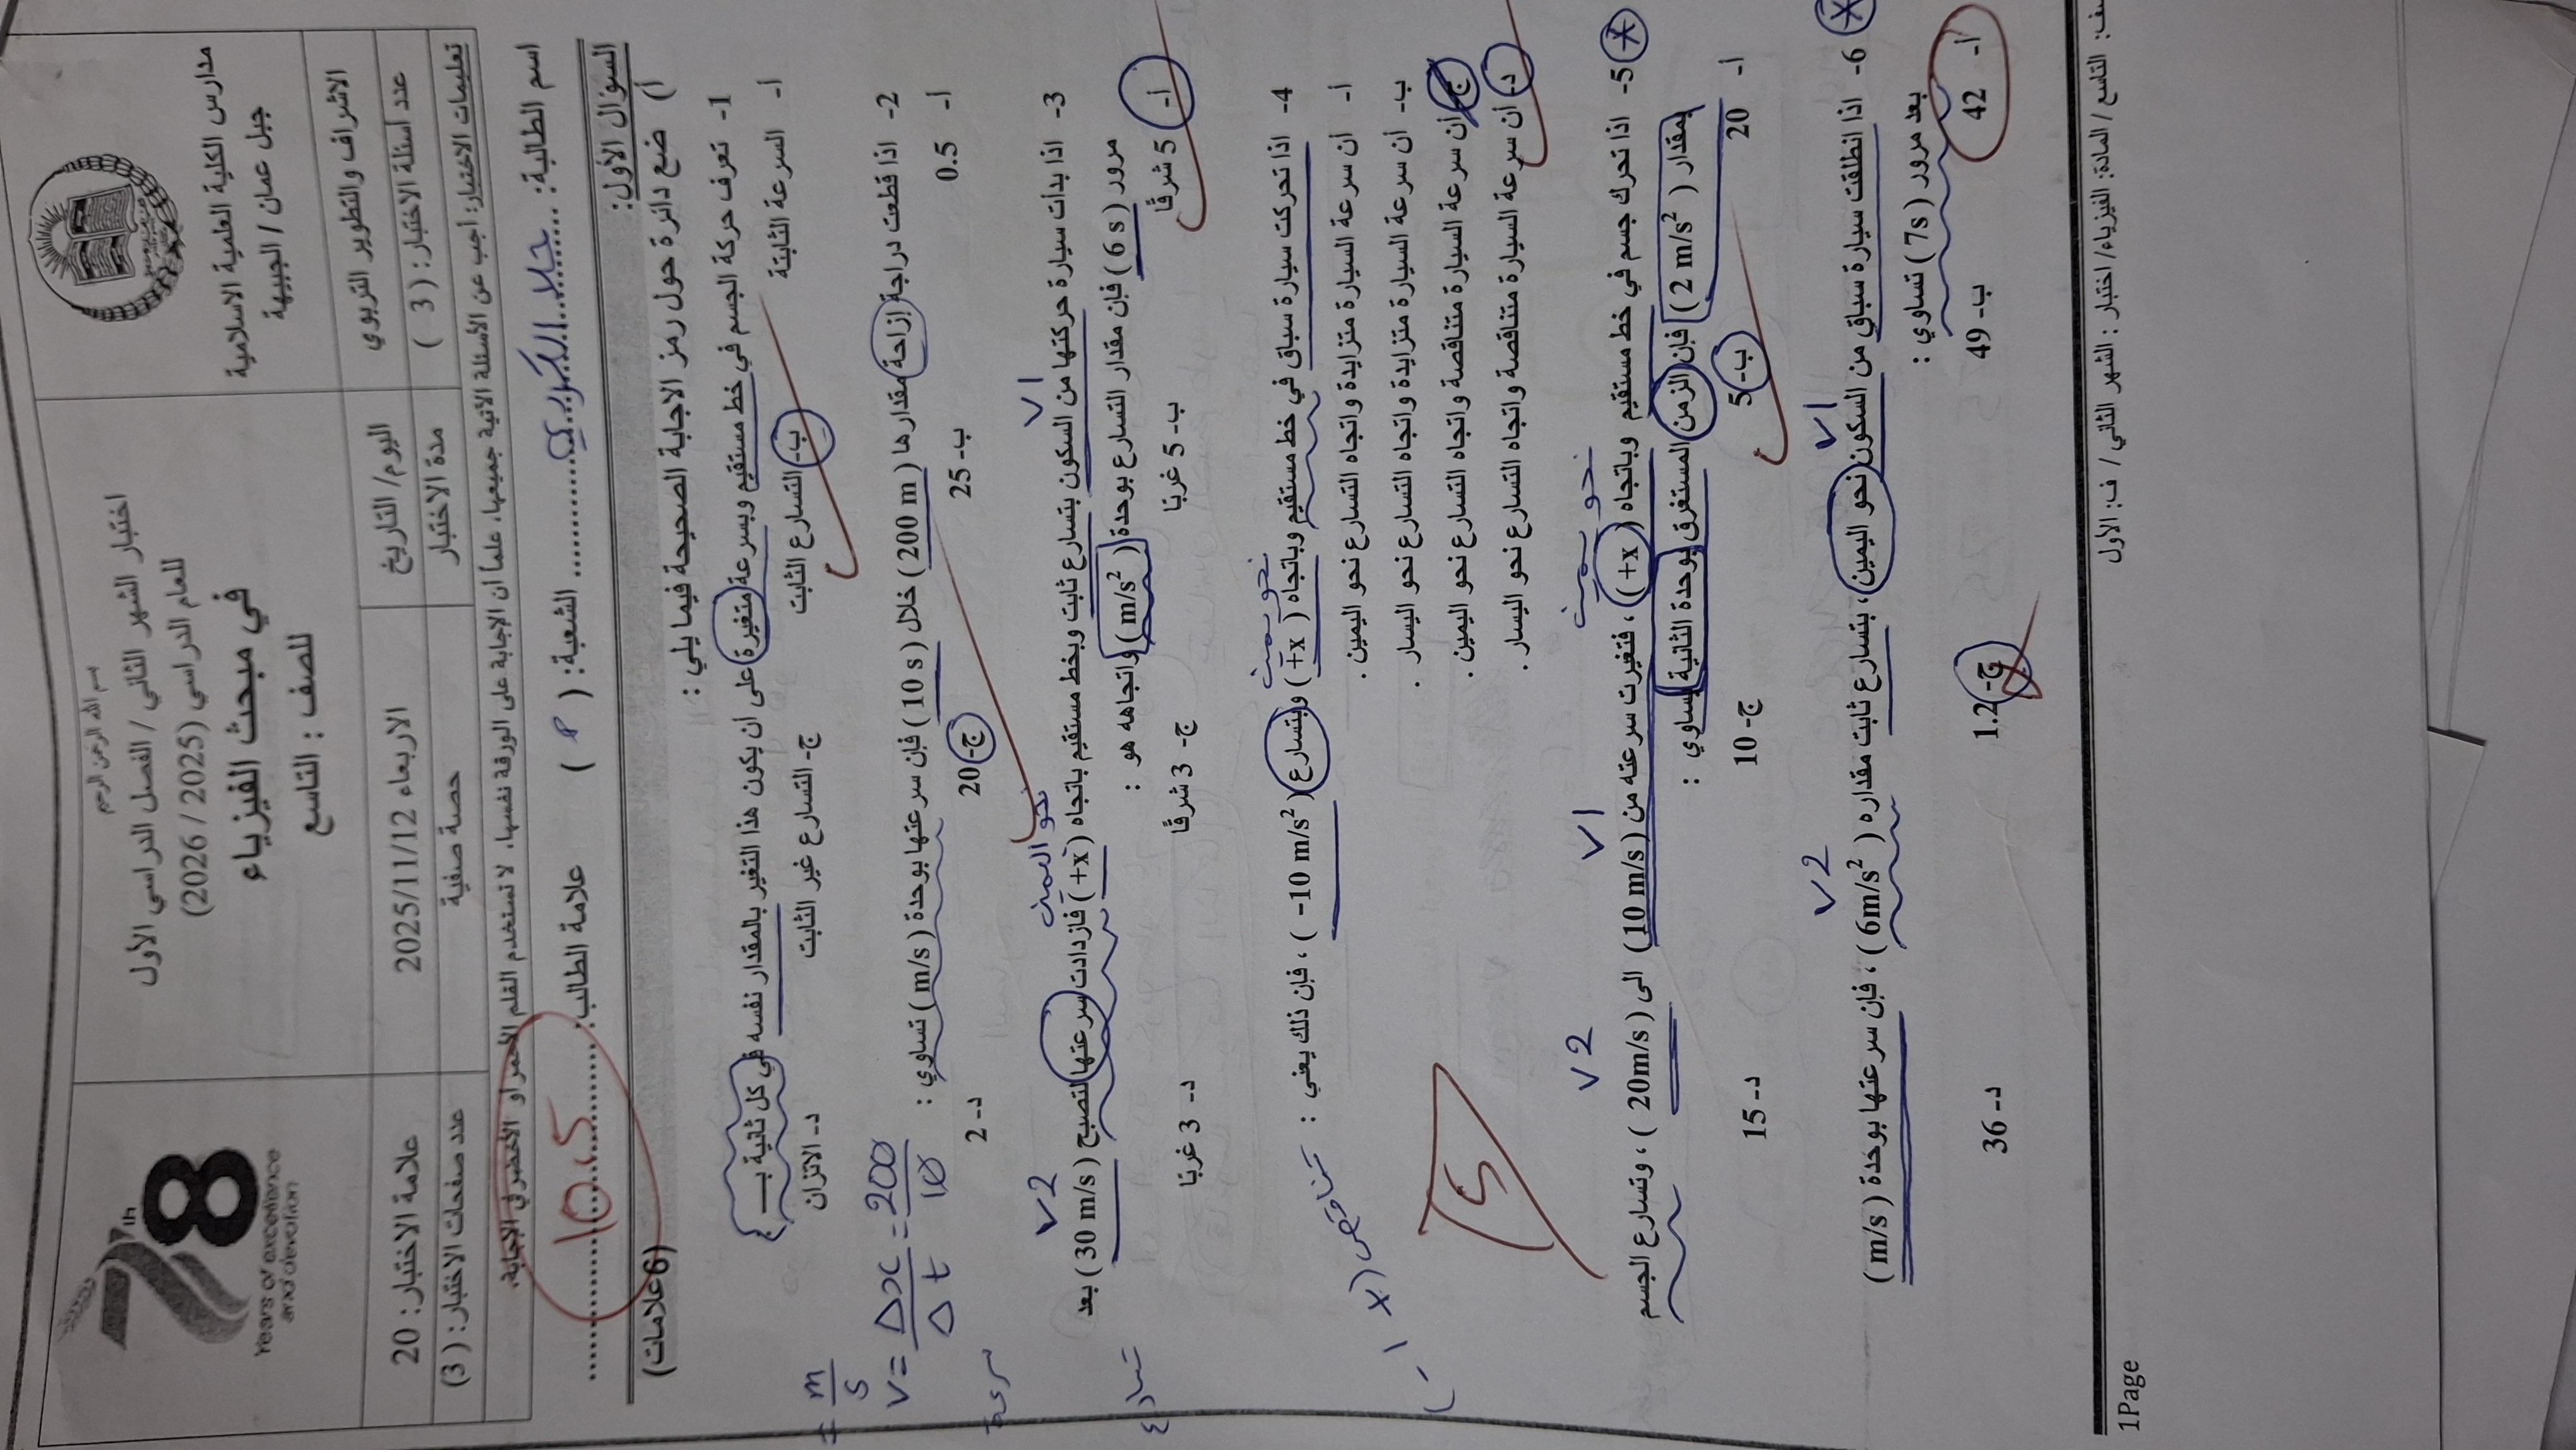 بسم الله الرحمن الرحيم
مدارس الكلية العلمية الاسلامية
جبل عمان / الجبيهة
اختبار الشهر الثاني / الفصل الدراسي الأول
للعام الدراسي (2025 / 2026)
في مبحث الفيزياء
للصف : التاسع
78th
Years of excellence
and devotion
الاشراف والتطوير التربوي
اليوم/ التاريخ
الاربعاء 2025/11/12
علامة الاختبار: 20
عدد أسئلة الاختبار: ( 3 )
مدة الاختبار
حصة صفية
عدد صفحات الاختبار: ( 3)
تعليمات الاختبار: أجب عن الأسئلة الآتية جميعها، علماً أن الإجابة على الورقة نفسها، لا تستخدم القلم الأحمر أو الأخضر في الإجابة.
اسم الطالبة: الشعبة: ( ) علامة الطالب: 10.5
السؤال الأول:
أ) ضع دائرة حول رمز الاجابة الصحيحة فيما يلي : (6علامات)
1- تعرف حركة الجسم في خط مستقيم وبسرعة متغيرة على ان يكون هذا التغير بالمقدار نفسه في كل ثانية بـ
أ- السرعة الثابتة ب- التسارع الثابت ج- التسارع غير الثابت د- الاتزان
= m/s
2- اذا قطعت دراجة إزاحة مقدارها ( 200 m ) خلال ( 10 s ) فإن سرعتها بوحدة ( m/s ) تساوي :
V = Δx/Δt = 200/10
أ- 0.5 ب- 25 ج- 20 د- 2
سرعة
V1 نحو اليمين V2
3- اذا بدأت سيارة حركتها من السكون بتسارع ثابت وبخط مستقيم باتجاه ( +x ) فازدادت سرعتها لتصبح ( 30 m/s ) بعد
مرور ( 6 s ) فإن مقدار التسارع بوحدة ( m/s² ) واتجاهه هو :
تسارع
أ- 5 شرقًا ب- 5 غربًا ج- 3 شرقًا د- 3 غربًا
نحو يمين
4- اذا تحركت سيارة سباق في خط مستقيم وباتجاه ( +x ) وبتسارع ( -10 m/s² ) ، فإن ذلك يعني :
تناقص (-x)
أ- أن سرعة السيارة متزايدة واتجاه التسارع نحو اليمين .
ب- أن سرعة السيارة متزايدة واتجاه التسارع نحو اليسار .
ج- أن سرعة السيارة متناقصة واتجاه التسارع نحو اليمين .
د- أن سرعة السيارة متناقصة واتجاه التسارع نحو اليسار .
5
نحو يمين V1 V2
5- اذا تحرك جسم في خط مستقيم وباتجاه ( +x ) ، فتغيرت سرعته من (10 m/s ) الى ( 20m/s ) ، وتسارع الجسم
بمقدار ( 2 m/s² ) فإن الزمن المستغرق بوحدة الثانية يساوي :
أ- 20 ب- 5 ج- 10 د- 15
V1 V2
6- اذا انطلقت سيارة سباق من السكون نحو اليمين، بتسارع ثابت مقداره ( 6m/s² ) ، فإن سرعتها بوحدة ( m/s )
بعد مرور ( 7s ) تساوي :
أ- 42 ب- 49 ج- 1.2 د- 36
التاسع / المادة: الفيزياء/ اختبار : الشهر الثاني / ف: الأول
1Page